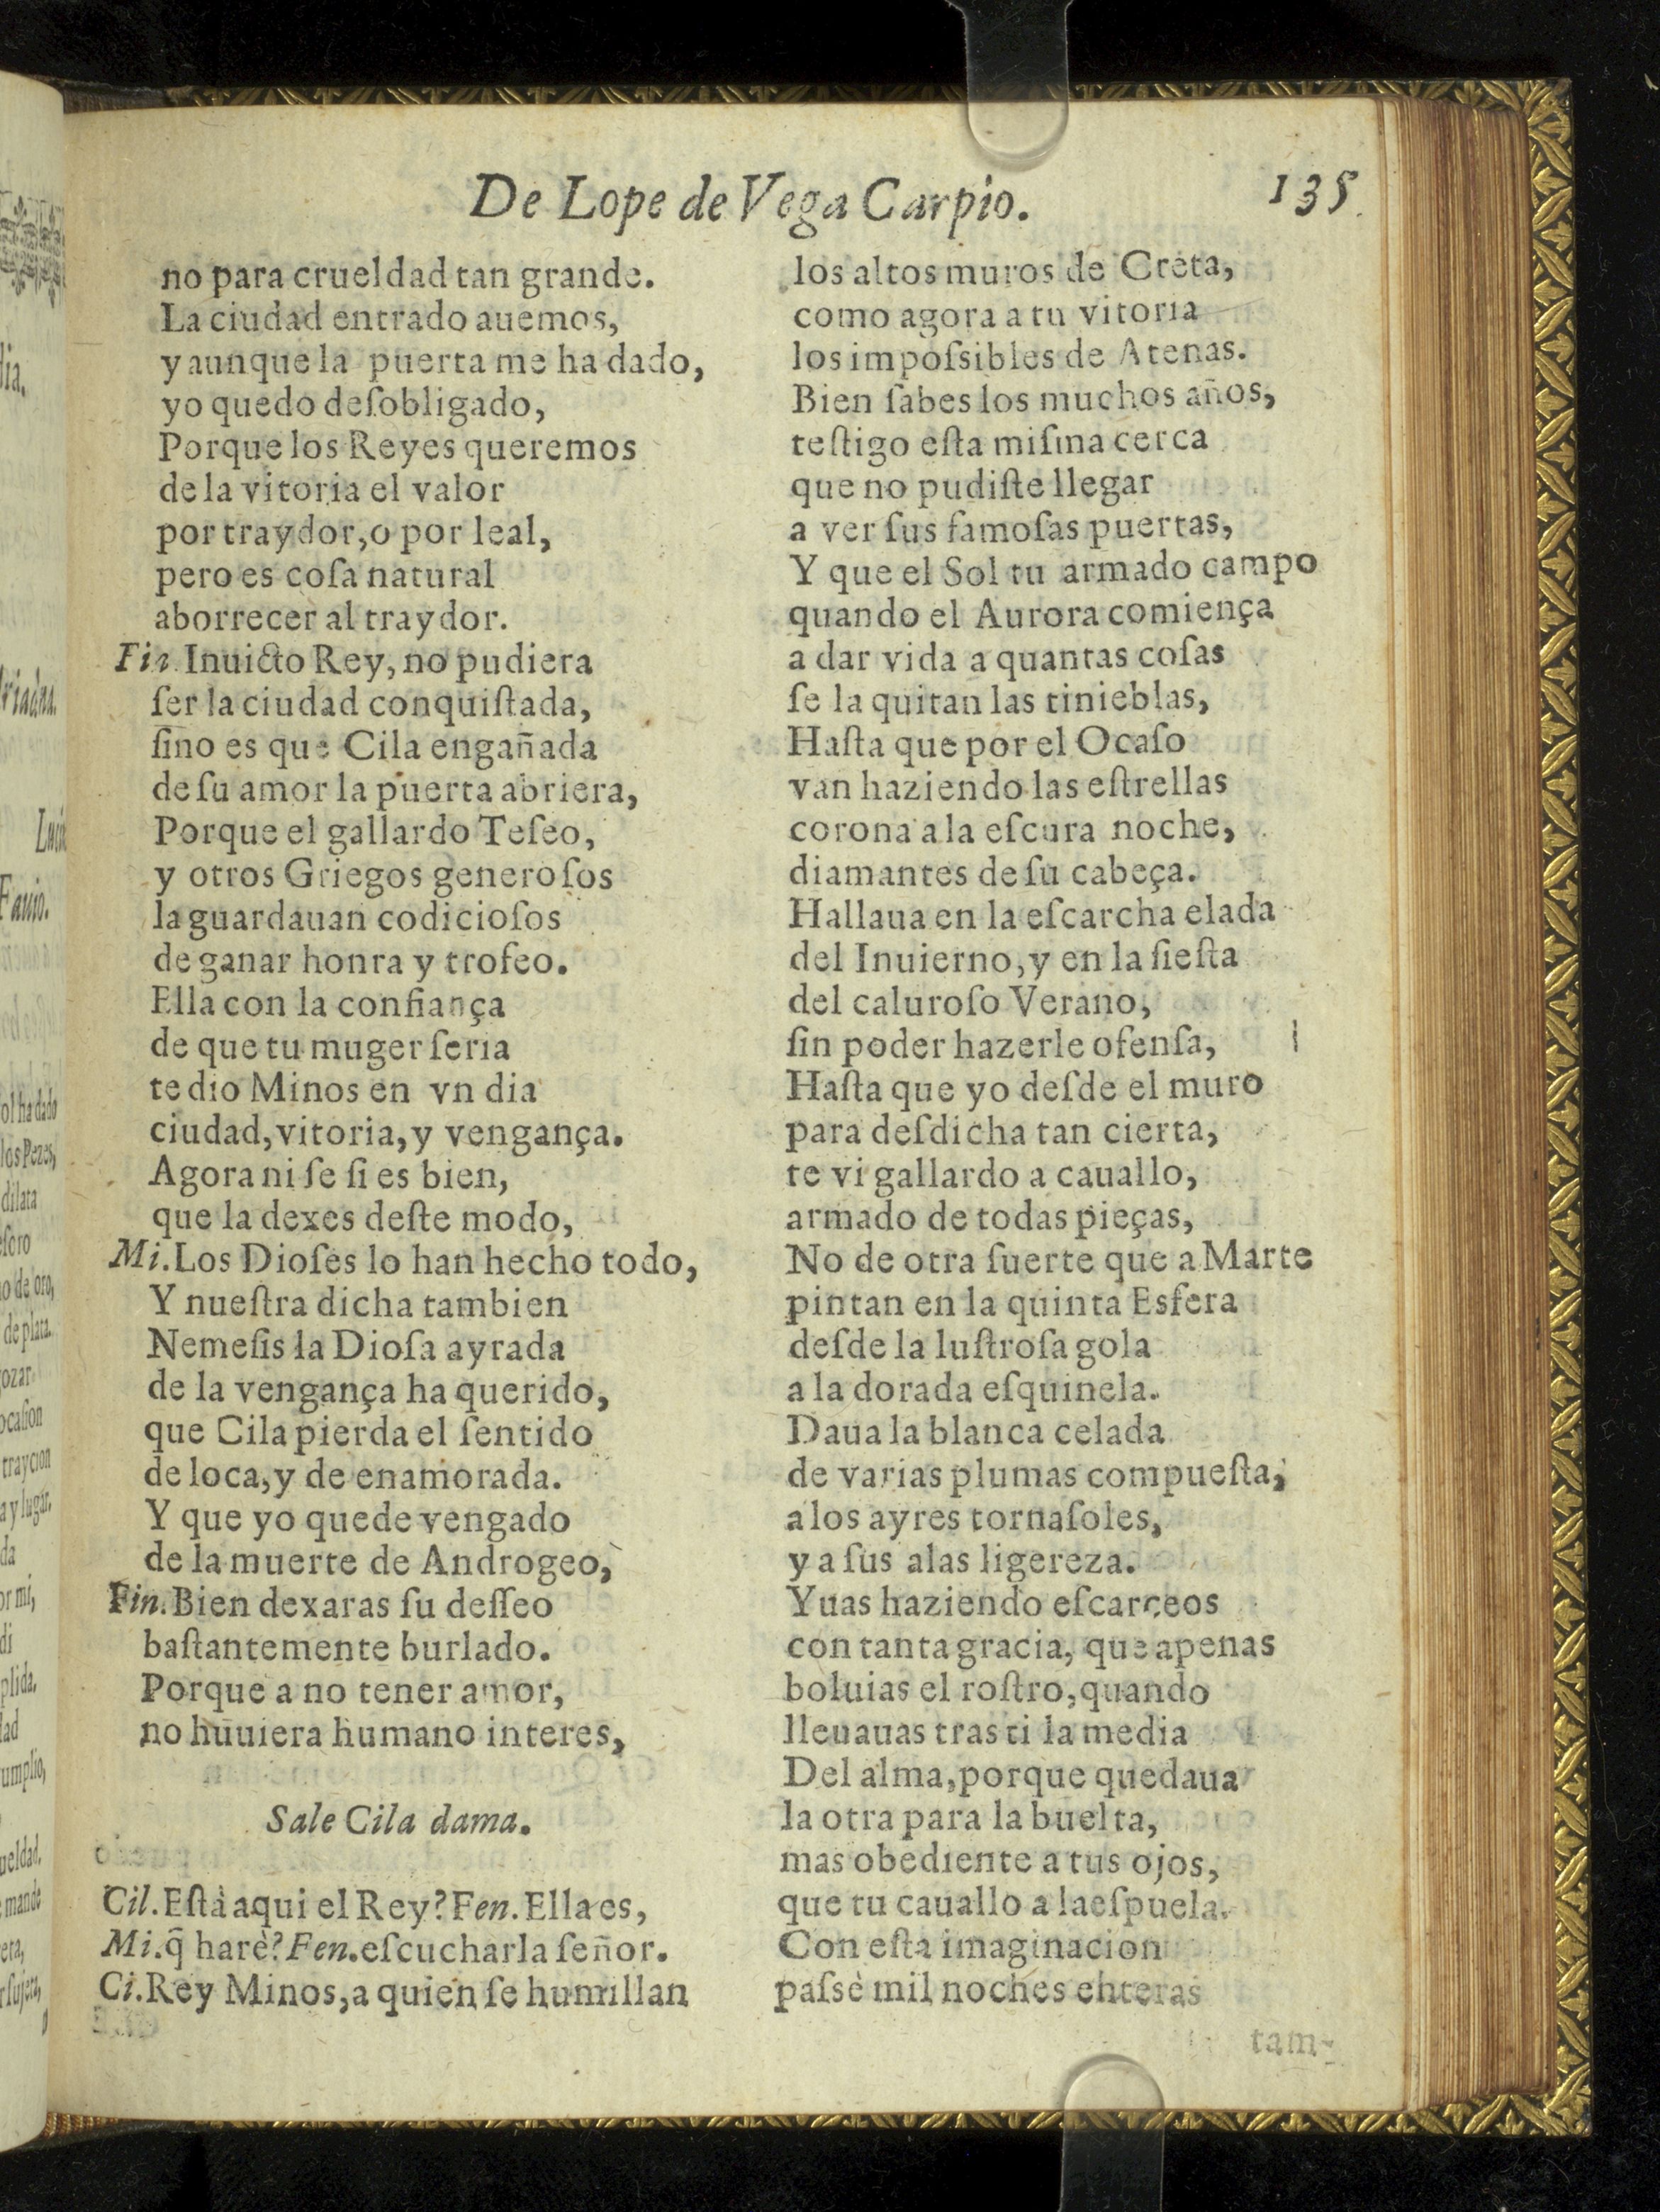 De Lope de Vega Carpio.
135.
no para crueldad tan grande.
La ciudad entrado auemos,
y aunque la puerta me ha dado,
yo quedo deſobligado,
Porque los Reyes queremos
de la vitoria el valor
por traydor, o por leal,
pero es coſa natural
aborrecer al traydor.
Fin. Inuicto Rey, no pudiera
ſer la ciudad conquiſtada,
ſino es que Cila engañada
de ſu amor la puerta abriera,
Porque el gallardo Teſeo,
y otros Griegos generoſos
la guardauan codicioſos
de ganar honra y trofeo.
Ella con la confiança
de que tu muger ſeria
te dio Minos en vn dia
ciudad, vitoria, y vengança.
Agora ni ſe ſi es bien,
que la dexes deſte modo,
Mi. Los Dioſes lo han hecho todo,
Y nueſtra dicha tambien
Nemeſis la Dioſa ayrada
de la vengança ha querido,
que Cila pierda el ſentido
de loca, y de enamorada.
Y que yo quede vengado
de la muerte de Androgeo,
Fin. Bien dexaras ſu deſſeo
baſtantemente burlado.
Porque a no tener amor,
no huuiera humano interes,
Sale Cila dama.
Cil. Eſtà aqui el Rey? Fen. Ella es,
Mi. q̃ harè? Fen. eſcucharla ſeñor.
Ci. Rey Minos, a quien ſe humillan
los altos muros de Creta,
como agora a tu vitoria
los impoſsibles de Atenas.
Bien ſabes los muchos años,
teſtigo eſta miſma cerca
que no pudiſte llegar
a ver ſus famoſas puertas,
Y que el Sol tu armado campo
quando el Aurora comiença
a dar vida a quantas coſas
ſe la quitan las tinieblas,
Haſta que por el Ocaſo
van haziendo las eſtrellas
corona a la eſcura noche,
diamantes de ſu cabeça.
Hallaua en la eſcarcha elada
del Inuierno, y en la ſieſta
del caluroſo Verano,
ſin poder hazerle ofenſa,
Haſta que yo deſde el muro
para deſdicha tan cierta,
te vi gallardo a cauallo,
armado de todas pieças,
No de otra ſuerte que a Marte
pintan en la quinta Esfera
deſde la luſtroſa gola
a la dorada eſquinela.
Daua la blanca celada
de varias plumas compueſta,
a los ayres tornaſoles,
y a ſus alas ligereza.
Yuas haziendo eſcarceos
con tanta gracia, que apenas
boluias el roſtro, quando
lleuauas tras ti la media
Del alma, porque quedaua
la otra para la buelta,
mas obediente a tus ojos,
que tu cauallo a la eſpuela.
Con eſta imaginacion
paſsè mil noches enteras
tam-